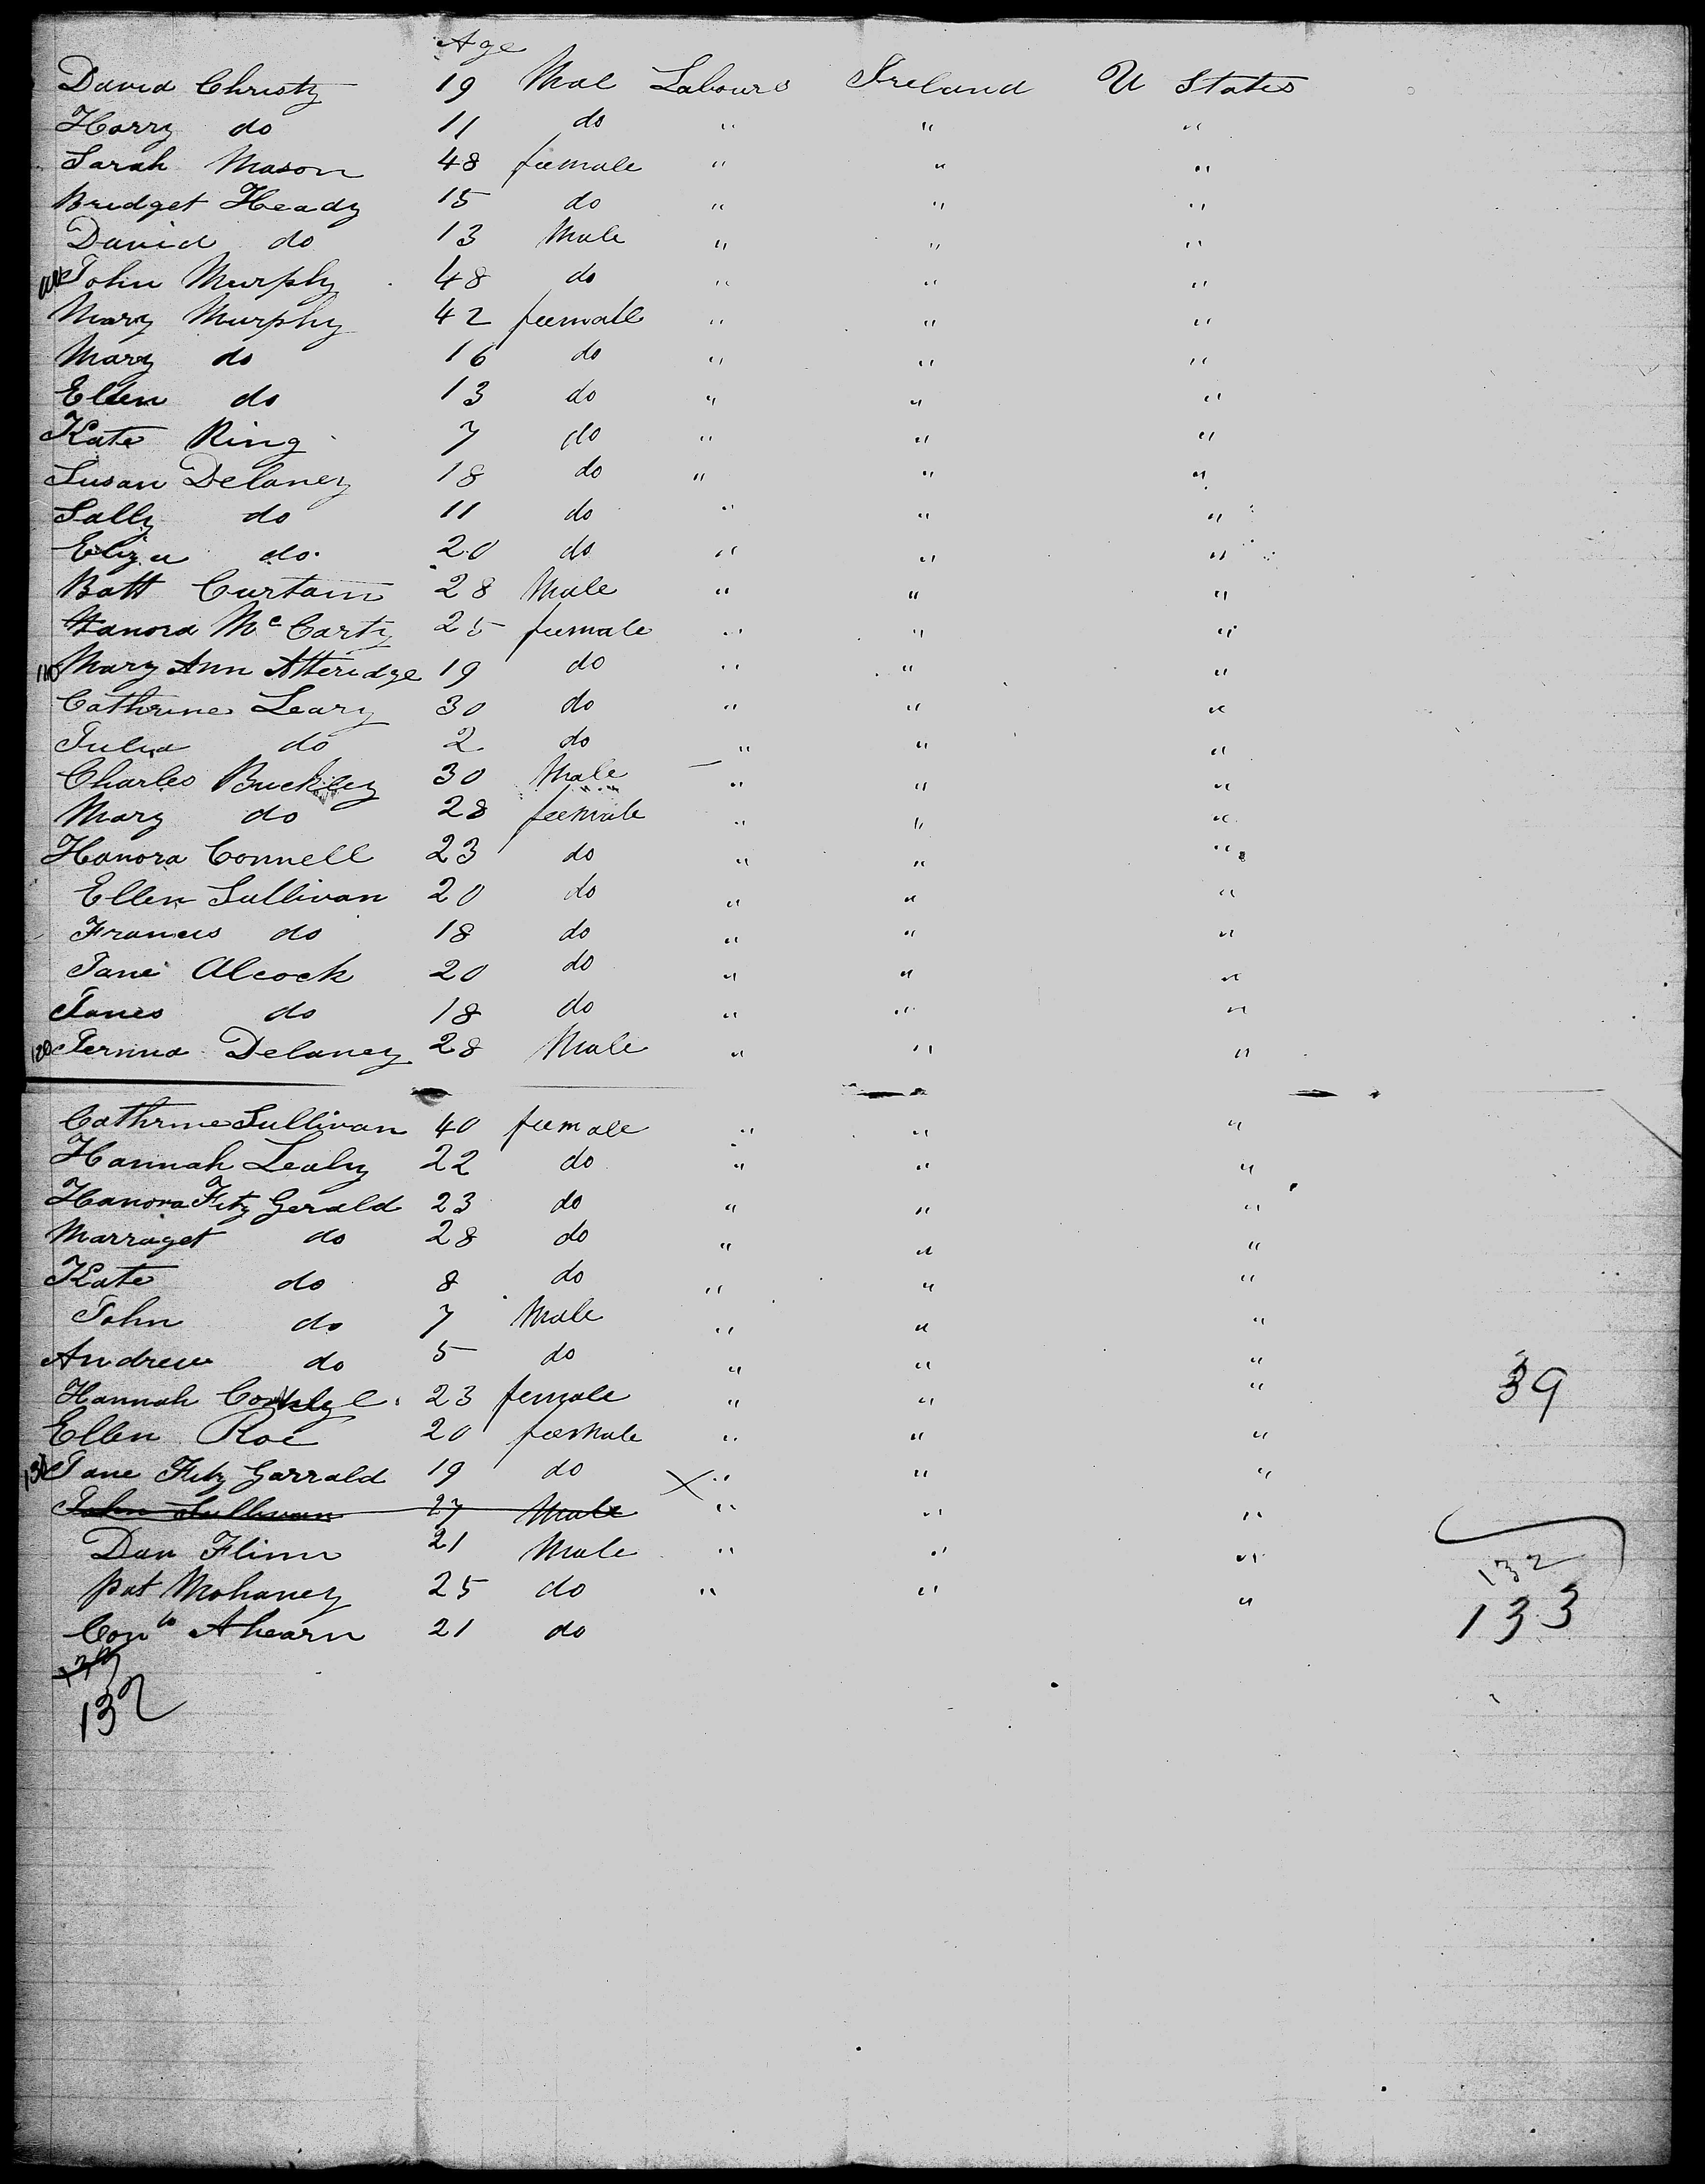 Age
David Christy 19 Mal Labours Ireland U States
Harry do 11 do " " "
Sarah Mason 48 feemale " " "
Bridget Heady 15 do " " "
David do 13 Male " " "
John Murphy 48 do " " "
Mary Murphy 42 feemale " " "
Mary do 16 do " " "
Ellen do 13 do " " "
Kate Ring 7 do " " "
Susan Delaney 18 do " " "
Sally do 11 do " " "
Eliza do 20 do " " "
Batt Curtain 28 Male " " "
Hanora Mc Carty 25 feemale " " "
110 Mary Ann Atteridge 19 do " " "
Cathrine Leary 30 do " " "
Julia do 2 do " " "
Charles Buckley 30 Male " " "
Mary do 28 feemale " " "
Hanora Connell 23 do " " "
Ellen Sullivan 20 do " " "
Francis do 18 do " " "
Jane Alcock 20 do " " "
Janes do 18 do " " "
120 Delaney 28 Male " " "
Cathrine Sullivan 40 feemale " " "
Hannah Leahy 22 do " " "
Hanora Fitz Gerald 23 do " " "
Marraget do 28 do " " "
Kate do 8 do " " "
John do 7 Male " " "
Andrew do 5 do " " "
Hannah 23 female " " " 39
Ellen Roe 20 feemale " " "
130 Jane Fitz Garrald 19 do X " " "
John Sullivan 27 Male " " "
Dan Flinn 21 Male " " " 132
Pat Mohaney 25 do " " " 133
Ahearn 21 do
132